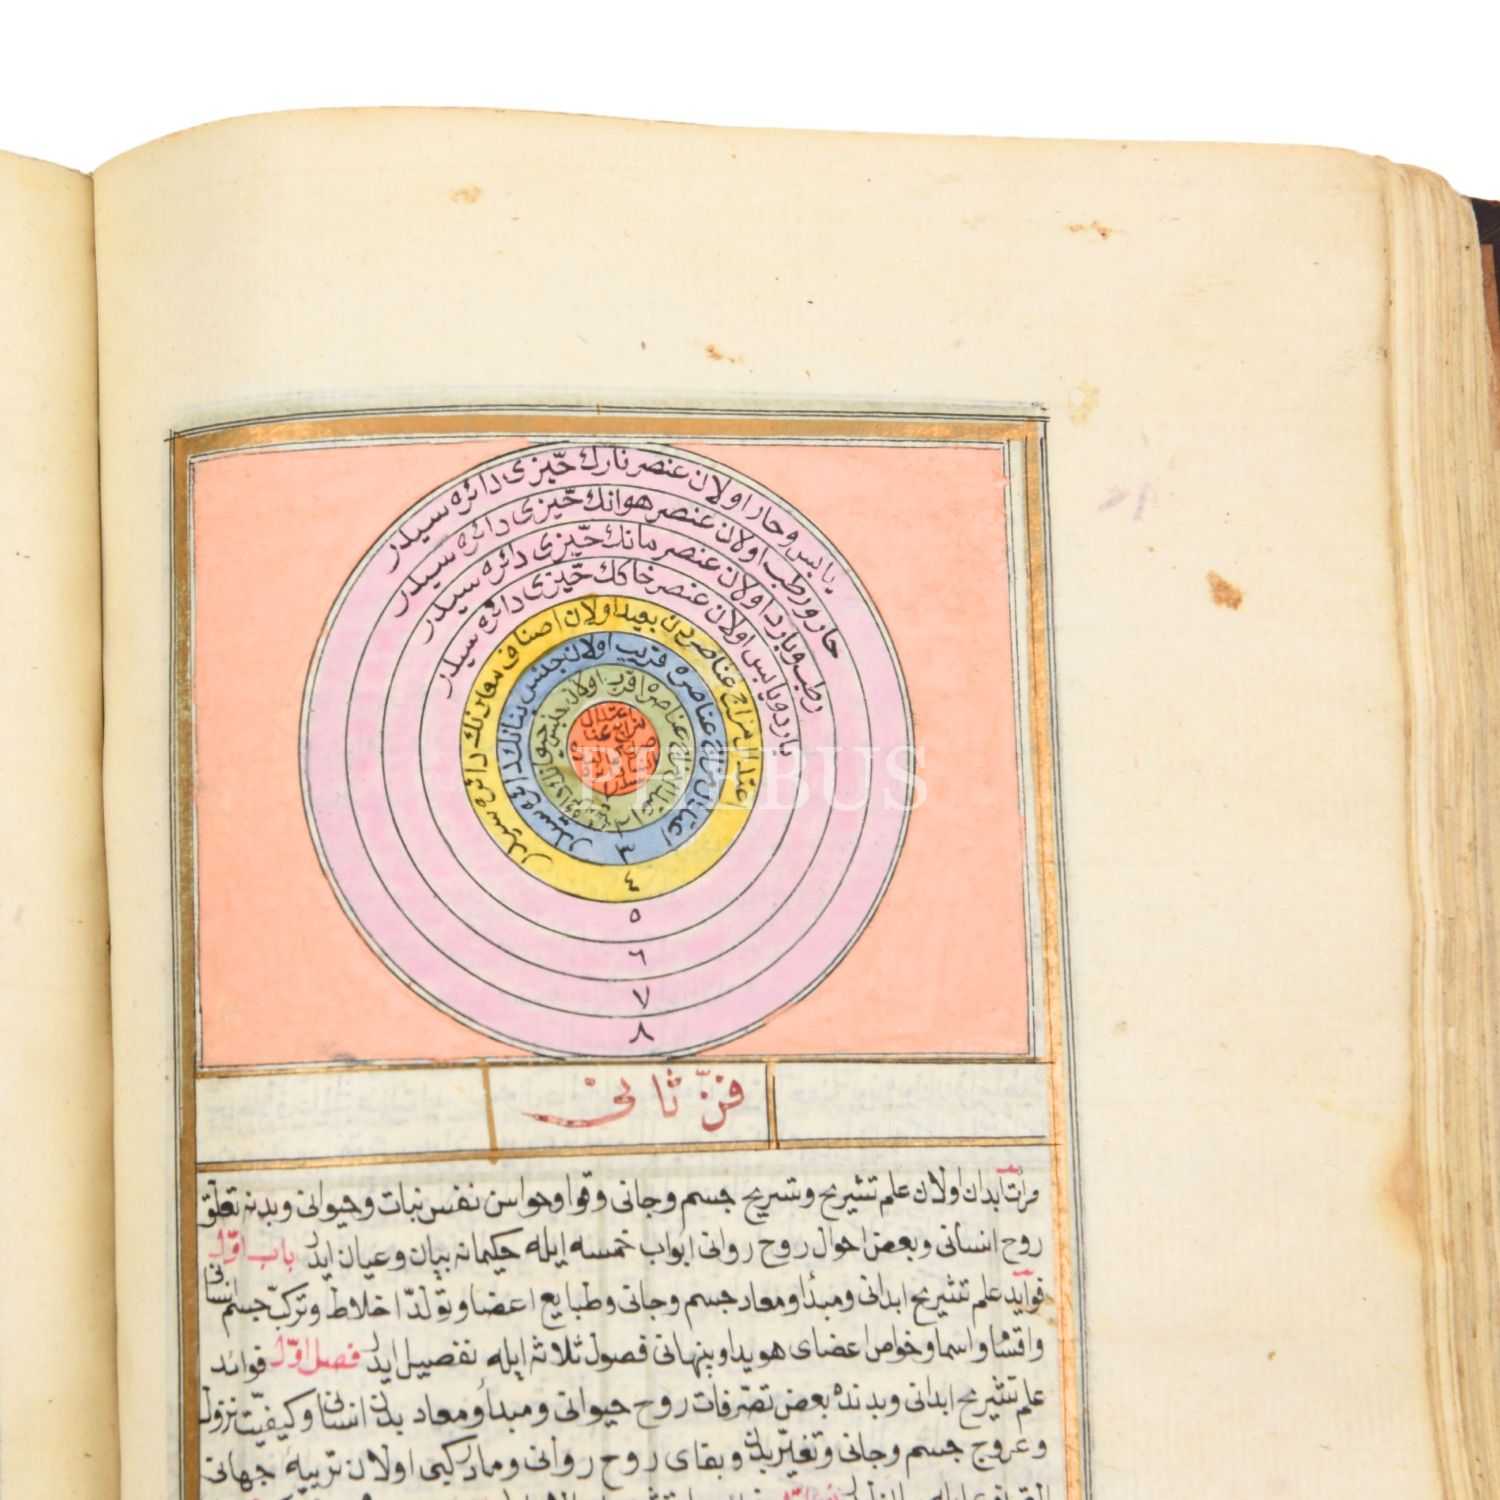 يابس وحار اولان عنصر نارك حيّزى دائره سيدر
حار ورطب اولان عنصر هوانك حيّزى دائره سيدر
رطب وبارد اولان عنصر مانك حيّزى دائره سيدر
بارد ويابس اولان عنصر خاكك حيّزى دائره سيدر
مزاج عناصردن بعيد اولان اصناف معادنك دائره سيدر
عناصره قريب اولان جنس نباتك دائره سيدر
عناصره اقرب اولان جنس
٣
٤
٥
٦
٧
٨
PHEBUS
فنّ ثانى
مرآت ابدان اولان علم تشريح وتسريح جسم وجانى وقوا وحواس نفس نبات وحيوانى وبدنه تعلّق
روح انسانى وبعض احوال روح روانى ابواب خمسه ايله حكيمانه بيان وعيان ايدر باب اوّل
فوايد علم تشريح ابدانى ومبدأ ومعاد جسم وجانى وطبايع اعضا وتولّد اخلاط وتركّب جسم انسانى
واقسام واسما وخواص اعضاى هويدا وپنهانى فصول ثلاثه ايله تفصيل ايدر فصل اوّل فوائد
علم تشريح ابدانى وبدنده بعض تصرّفات روح حيوانى ومبدأ ومعاد بدن انسانى وكيفيّت نزول
وعروج جسم وجانى وتغيّر بدن وبقاى روح روانى ومادر كبى اولان تربيهٔ جهانى